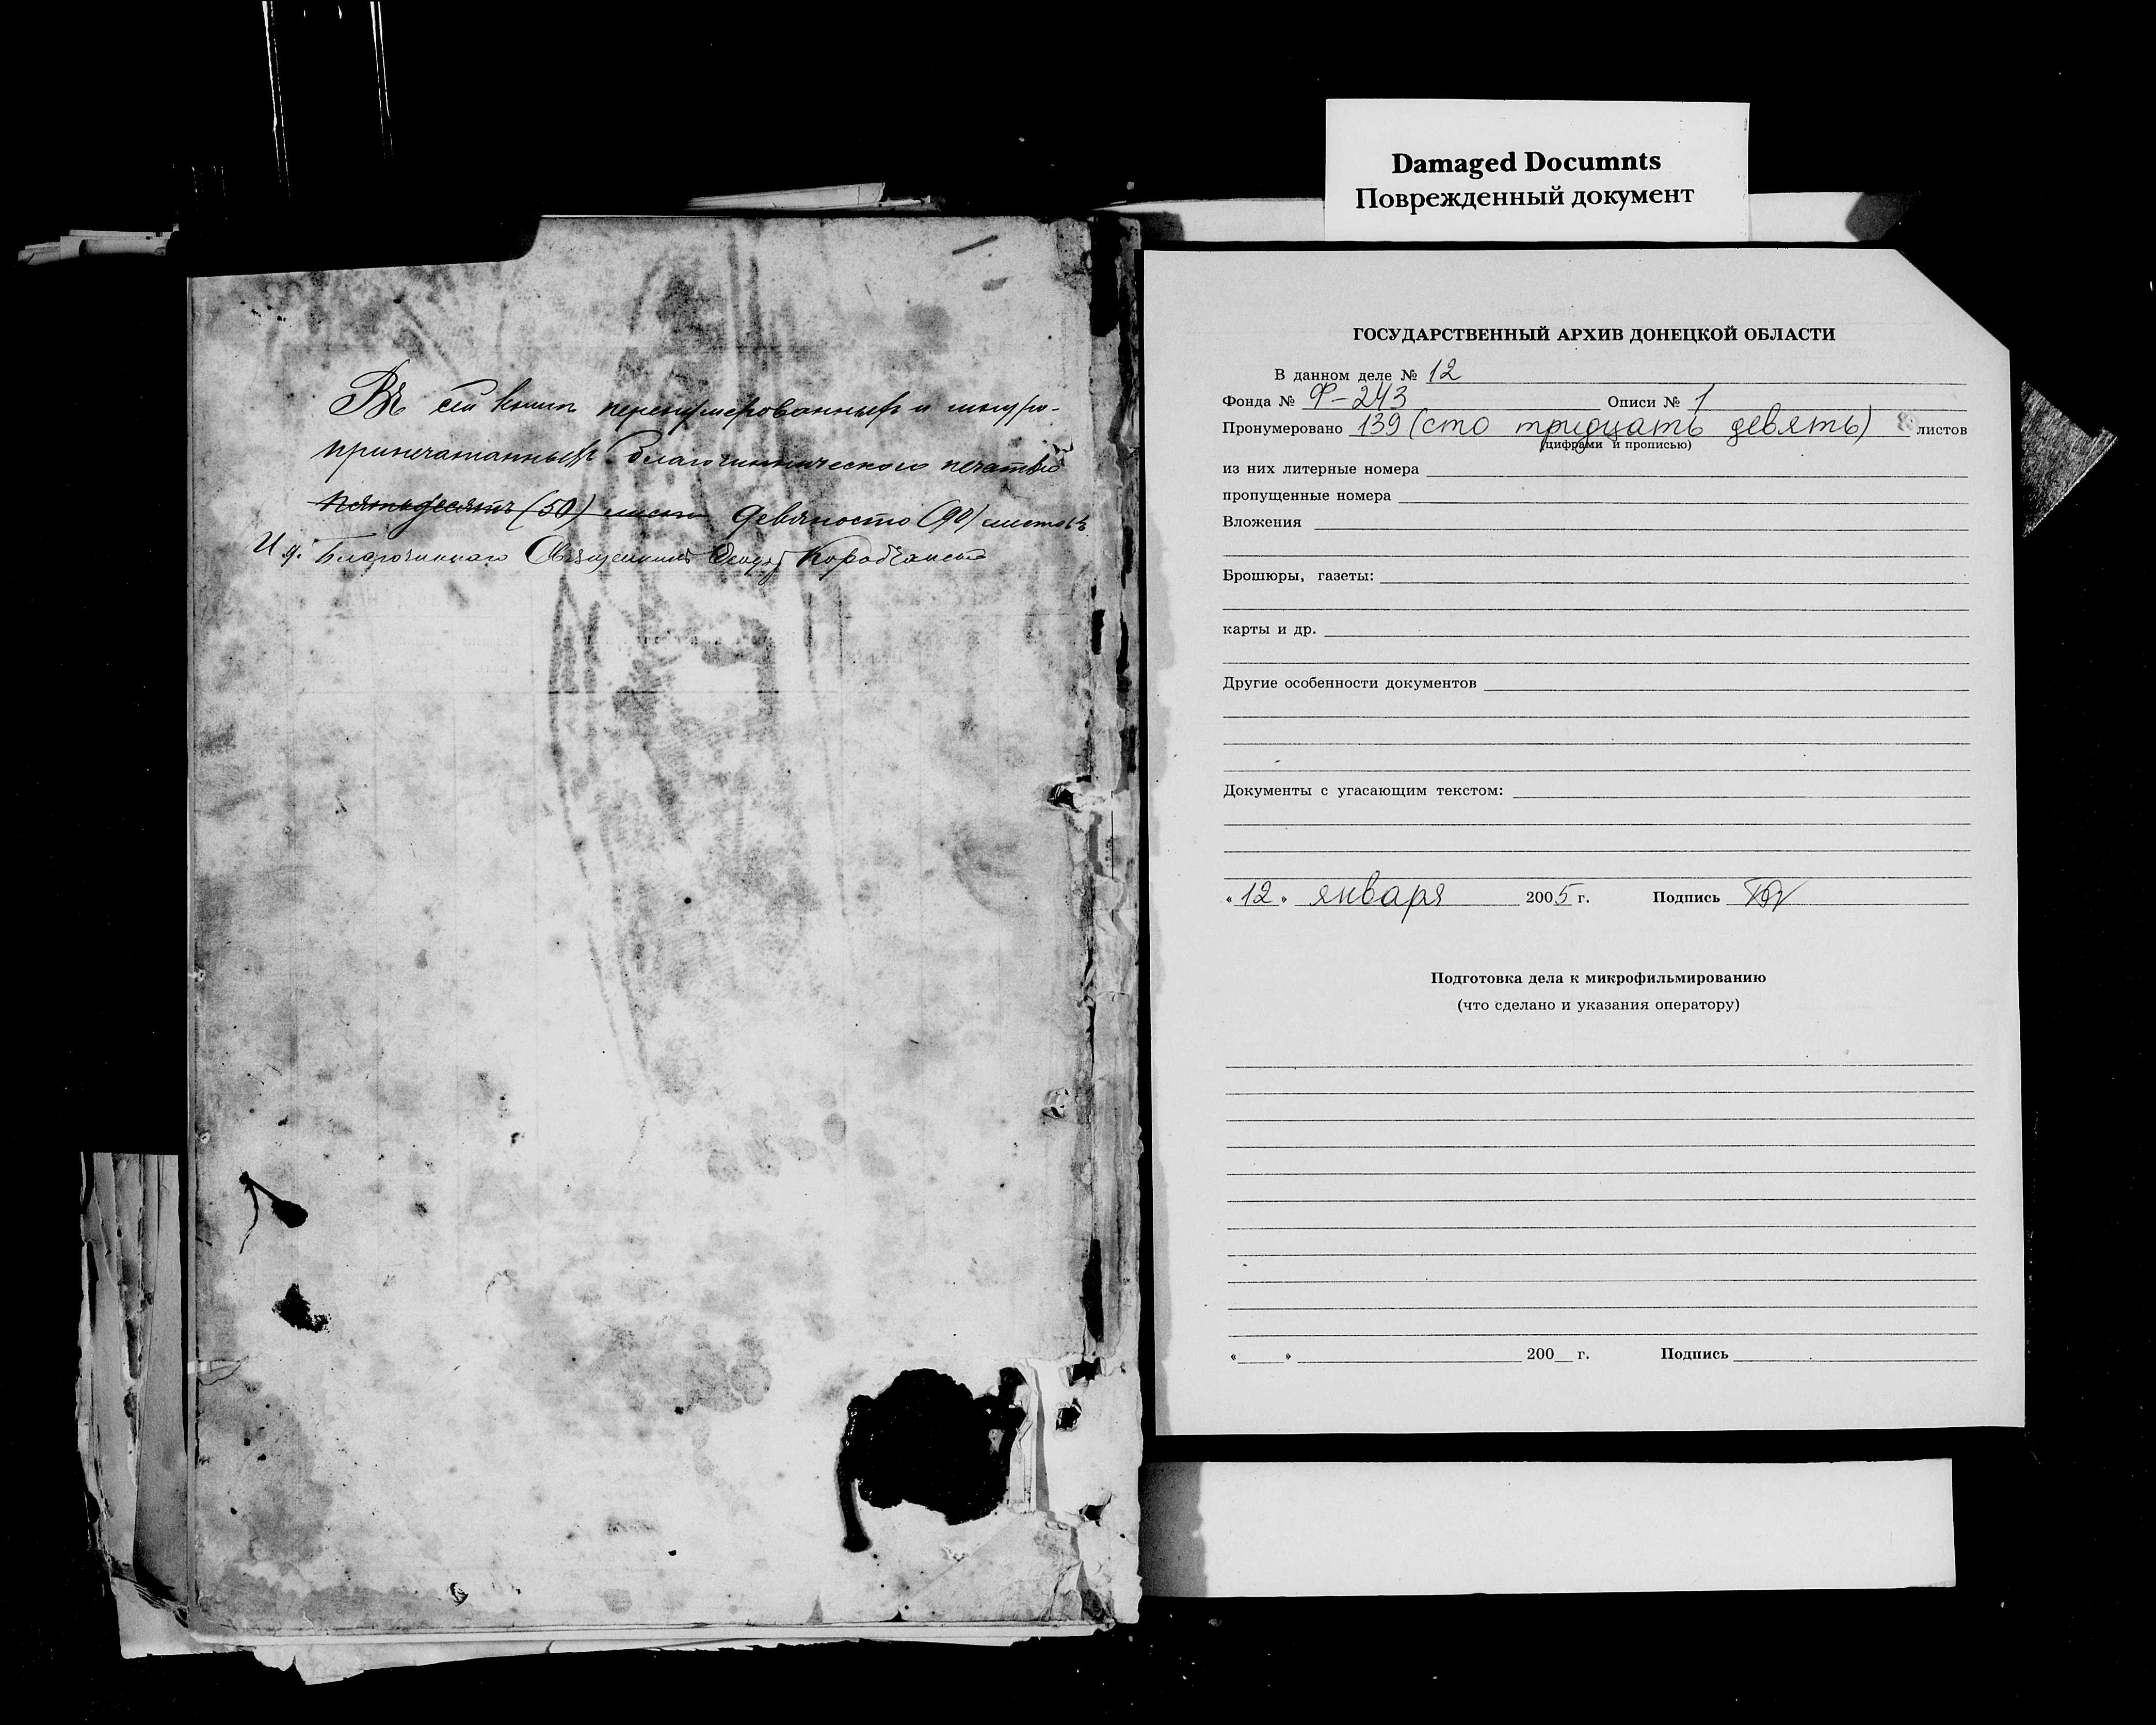 Damaged Documnts
Поврежденный документ
Въ сей книгѣ перенумерованныхъ и шнуро-
припечатанныхъ благочинническою печатью
пятьдесятъ (50) листо девяносто (90) листовъ
И. д. Благочиннаго Священникъ
ГОСУДАРСТВЕННЫЙ АРХИВ ДОНЕЦКОЙ ОБЛАСТИ
В данном деле № 12
Фонда № Ф-243 Описи № 1
Пронумеровано 139 (сто тридцать девять) листов
(цифрами и прописью)
из них литерные номера
пропущенные номера
Вложения
Брошюры, газеты:
карты и др.
Другие особенности документов
Документы с угасающим текстом:
« 12 » января 2005 г. Подпись
Подготовка дела к микрофильмированию
(что сделано и указания оператору)
« » 200 г. Подпись